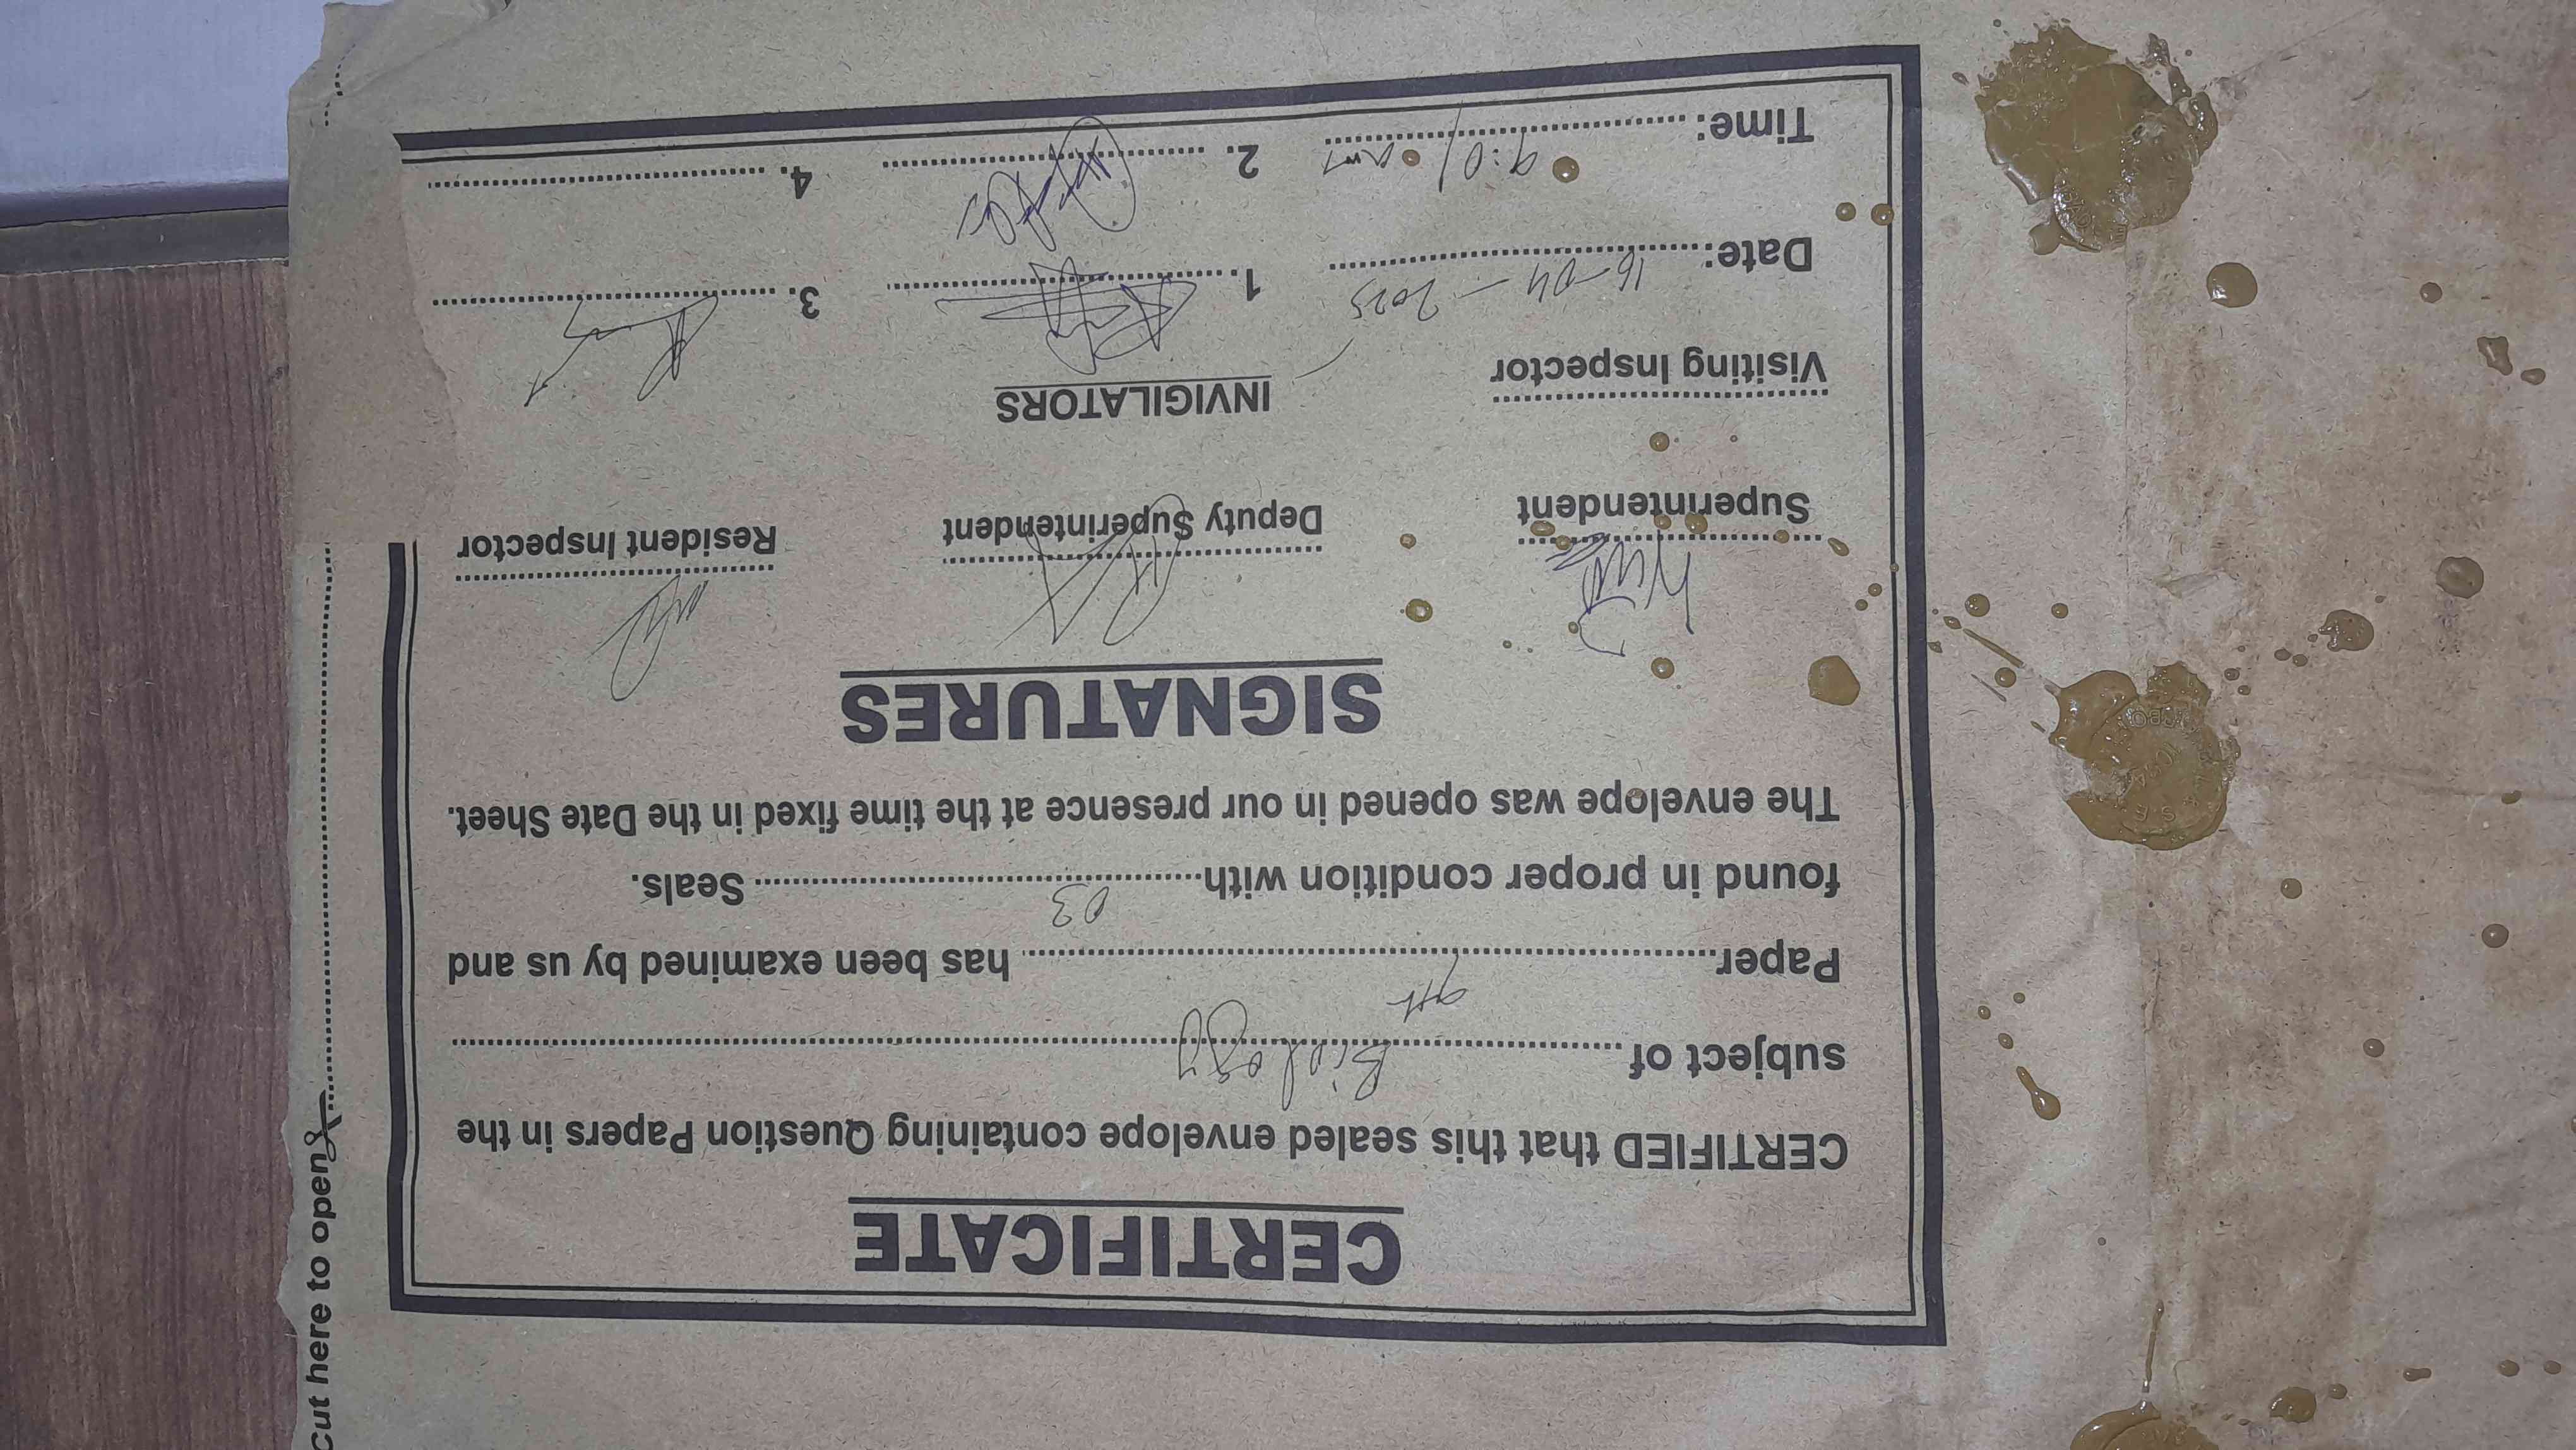 CERTIFICATE
CERTIFIED that this sealed envelope containing Question Papers in the
subject of Biology
Paper 9th has been examined by us and
found in proper condition with 03 Seals.
The envelope was opened in our presence at the time fixed in the Date Sheet.
SIGNATURES
Superintendent Deputy Superintendent Resident Inspector
Visiting Inspector INVIGILATORS
Date: 16-04-2025 1. 3.
Time: 9:01 am 2. 4.
cut here to open